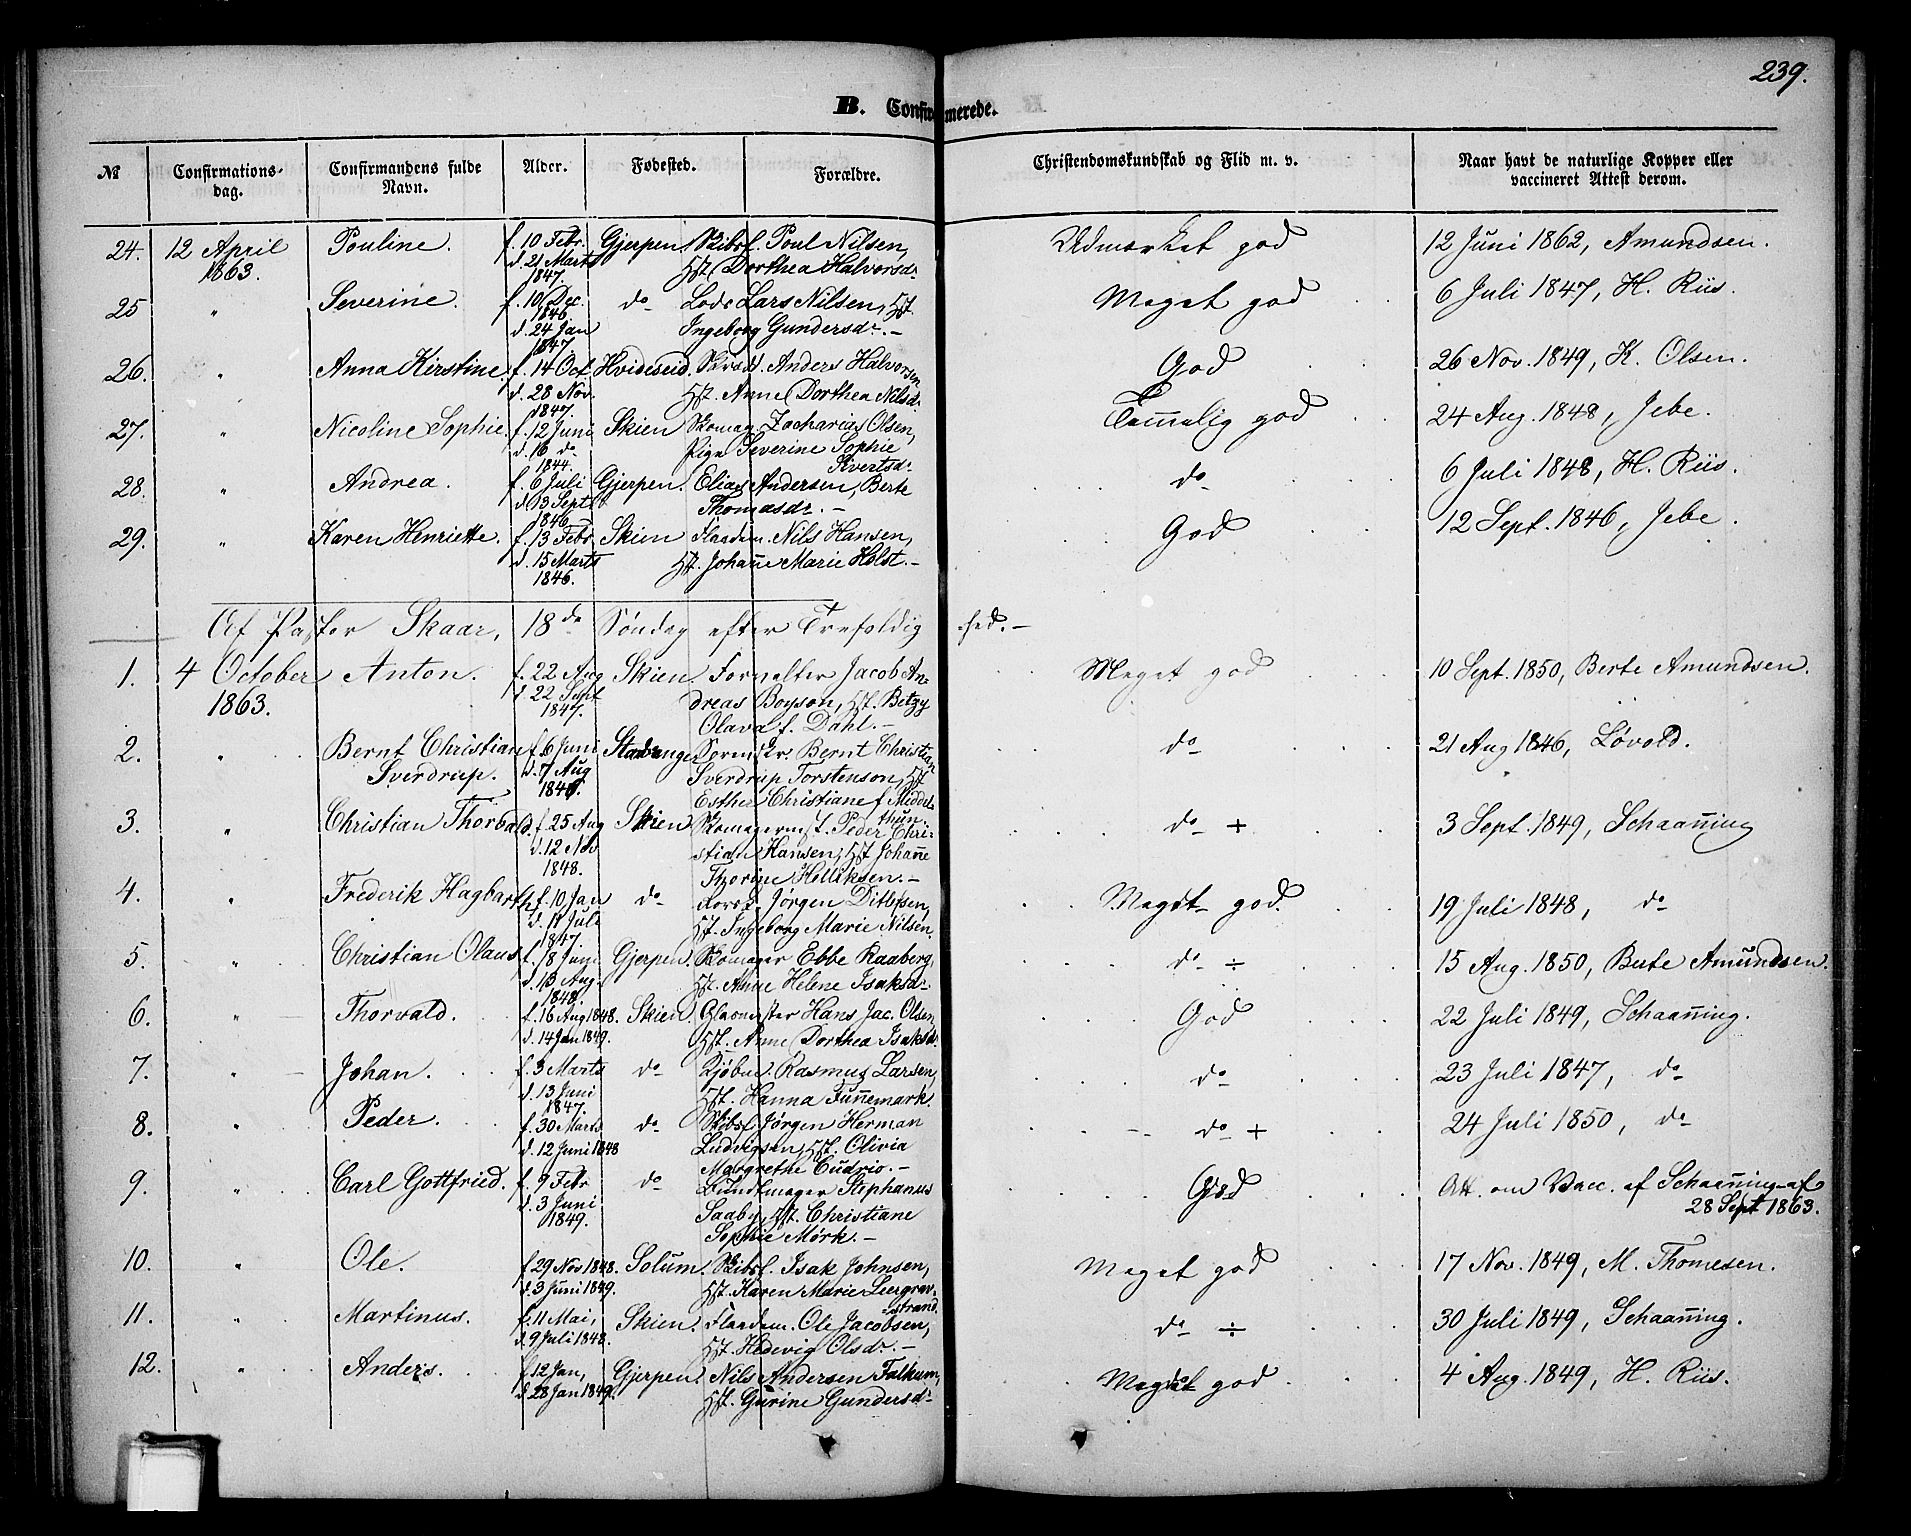 239.
B. Confirmerede.
№ Confirmations-dag. Confirmandens fulde Navn. Alder. Fødested. Forældre. Christendomskundskab og Flid m. v. Naar havt de naturlige Kopper eller vaccineret Attest derom.
24. 12 April Pouline. f. 10 Febr. Gjerpen. Skibsf. Poul Nilsen, Udmærket god 12 Juni 1862, Amundsen.
1863. d. 21 Marts Hst. Dorthea Halvorsdr.
1847.
25 " Severine. f. 10 Dec. do Lods Lars Nilsen, Hst. Meget god 6 Juli 1847, H. Riis.
1846
d. 24 Jan Ingeborg Gundersdr. –
1847
26. " Anna Kirstine. f. 14 Oct Hvideseid. Anders Halvorsen God 26 Nov. 1849, K. Olsen.
d. 28 Nov. Hst. Anne Dorthea Nilsd.
1847.
27. " Nicoline Sophie. f. 12 Juni Skien Skomag. Zacharias Olsen, Temelig god 24 Aug. 1848, Jebe.
d. 16 do Pige Severine Sophie
1844. Sivertsdr.
28. " Andrea. f. 6 Juli Gjerpen. Elias Andersen, Berte do 6 Juli 1848, H. Riis.
d. 13 Sept Thomasdr. –
1846
29. " Karen Henriette. f. 13 Febr. Skien Flaadem. Nils Hansen, God 12 Sept. 1846, Jebe.
d. 15 Marts Hst. Johanne Marie Holst. –
1846.
Af Pastor Skaar, 18de Søndag efter Trefoldighed. –
1. 4 October Anton. f. 22 Aug Skien Forvalter Jacob An- Meget god 10 Sept. 1850, Berte Amundsen.
1863. d. 22 Sept dreas Boyson, Hst. Betzy
1847. Olava f. Dahl. –
2. " Bernt Christian f. 6 Juni Stavanger Bernt Christian do 21 Aug 1846, Løvold.
Sverdrup. d. 7 Aug Sverdrup Torstenson, Hst
Esther Christiane f. Middel-
thun.
3. " Christian Thorvald. f. 25 Aug Skien Skomagermst. Peder Chri- do + 3 Sept. 1849, Schaanning
d. 12 Nov stian Hansen, Hst Johanne
1848. Thorine Helliksen. –
4. " Frederik Hagbarth f. 10 Jan do Jørgen Ditlefsen, Meget god. 19 Juli 1848, do
d. 11 Juli Hst. Ingeborg Marie Nilsen.
1847.
5. " Christian Olaus f. 18 Juni Gjerpen. Skomager Ebbe Raaberg, do ÷ 15 Aug. 1850, Berte Amundsen.
d. 13 Aug. Hst. Anne Helene Isaksdr.
1848.
6. " Thorvald. f. 16 Aug 1848. Skien Hans Jac. Olsen God 22 Juli 1849, Schaanning.
d. 14 Jan 1849. Hst. Anne Dorthea Isaksd.
7. " Johan. f. 3 Marts do Kjøbm. Rasmus Larsen, do 23 Juli 1847, do
d. 13 Juni Hst. Hanna Funnemark.
1847.
8. " Peder. f. 30 Marts do Skibsf. Jørgen Herman do + 24 Juli 1850, do
d. 12 Juni 1848 Ludvigsen, Hst. Olivia
Margrethe Cudrio. –
9. " Carl Gottfried. f. 9 Febr do Bundtmager Stephanus God Att. om Vacc. af Schaanning af
d. 3 Juni Saaby, Hst. Christiane 28 Sept 1863.
1849. Sophie Mørk. –
10. " Ole. f. 29 Nov 1848. Solum. Skibsf. Isak Johnsen, Meget god 17 Nov. 1849, M. Thomesen.
d. 3 Juni 1849. Hst. Karen Marie Leergrav-
strand.
11. " Martinus. f. 11 Mai, Skien. Flaadem. Ole Jacobsen, do ÷ 30 Juli 1849, Schaanning.
d. 9 Juli 1848. Hst. Hedevig Olsdr. –
12. " Anders. f. 12 Jan, Gjerpen. Nils Andersen Falkum, Meget god 4 Aug. 1849, H. Riis.
d. 28 Jan 1849. Hst. Gurine Gundersdr –